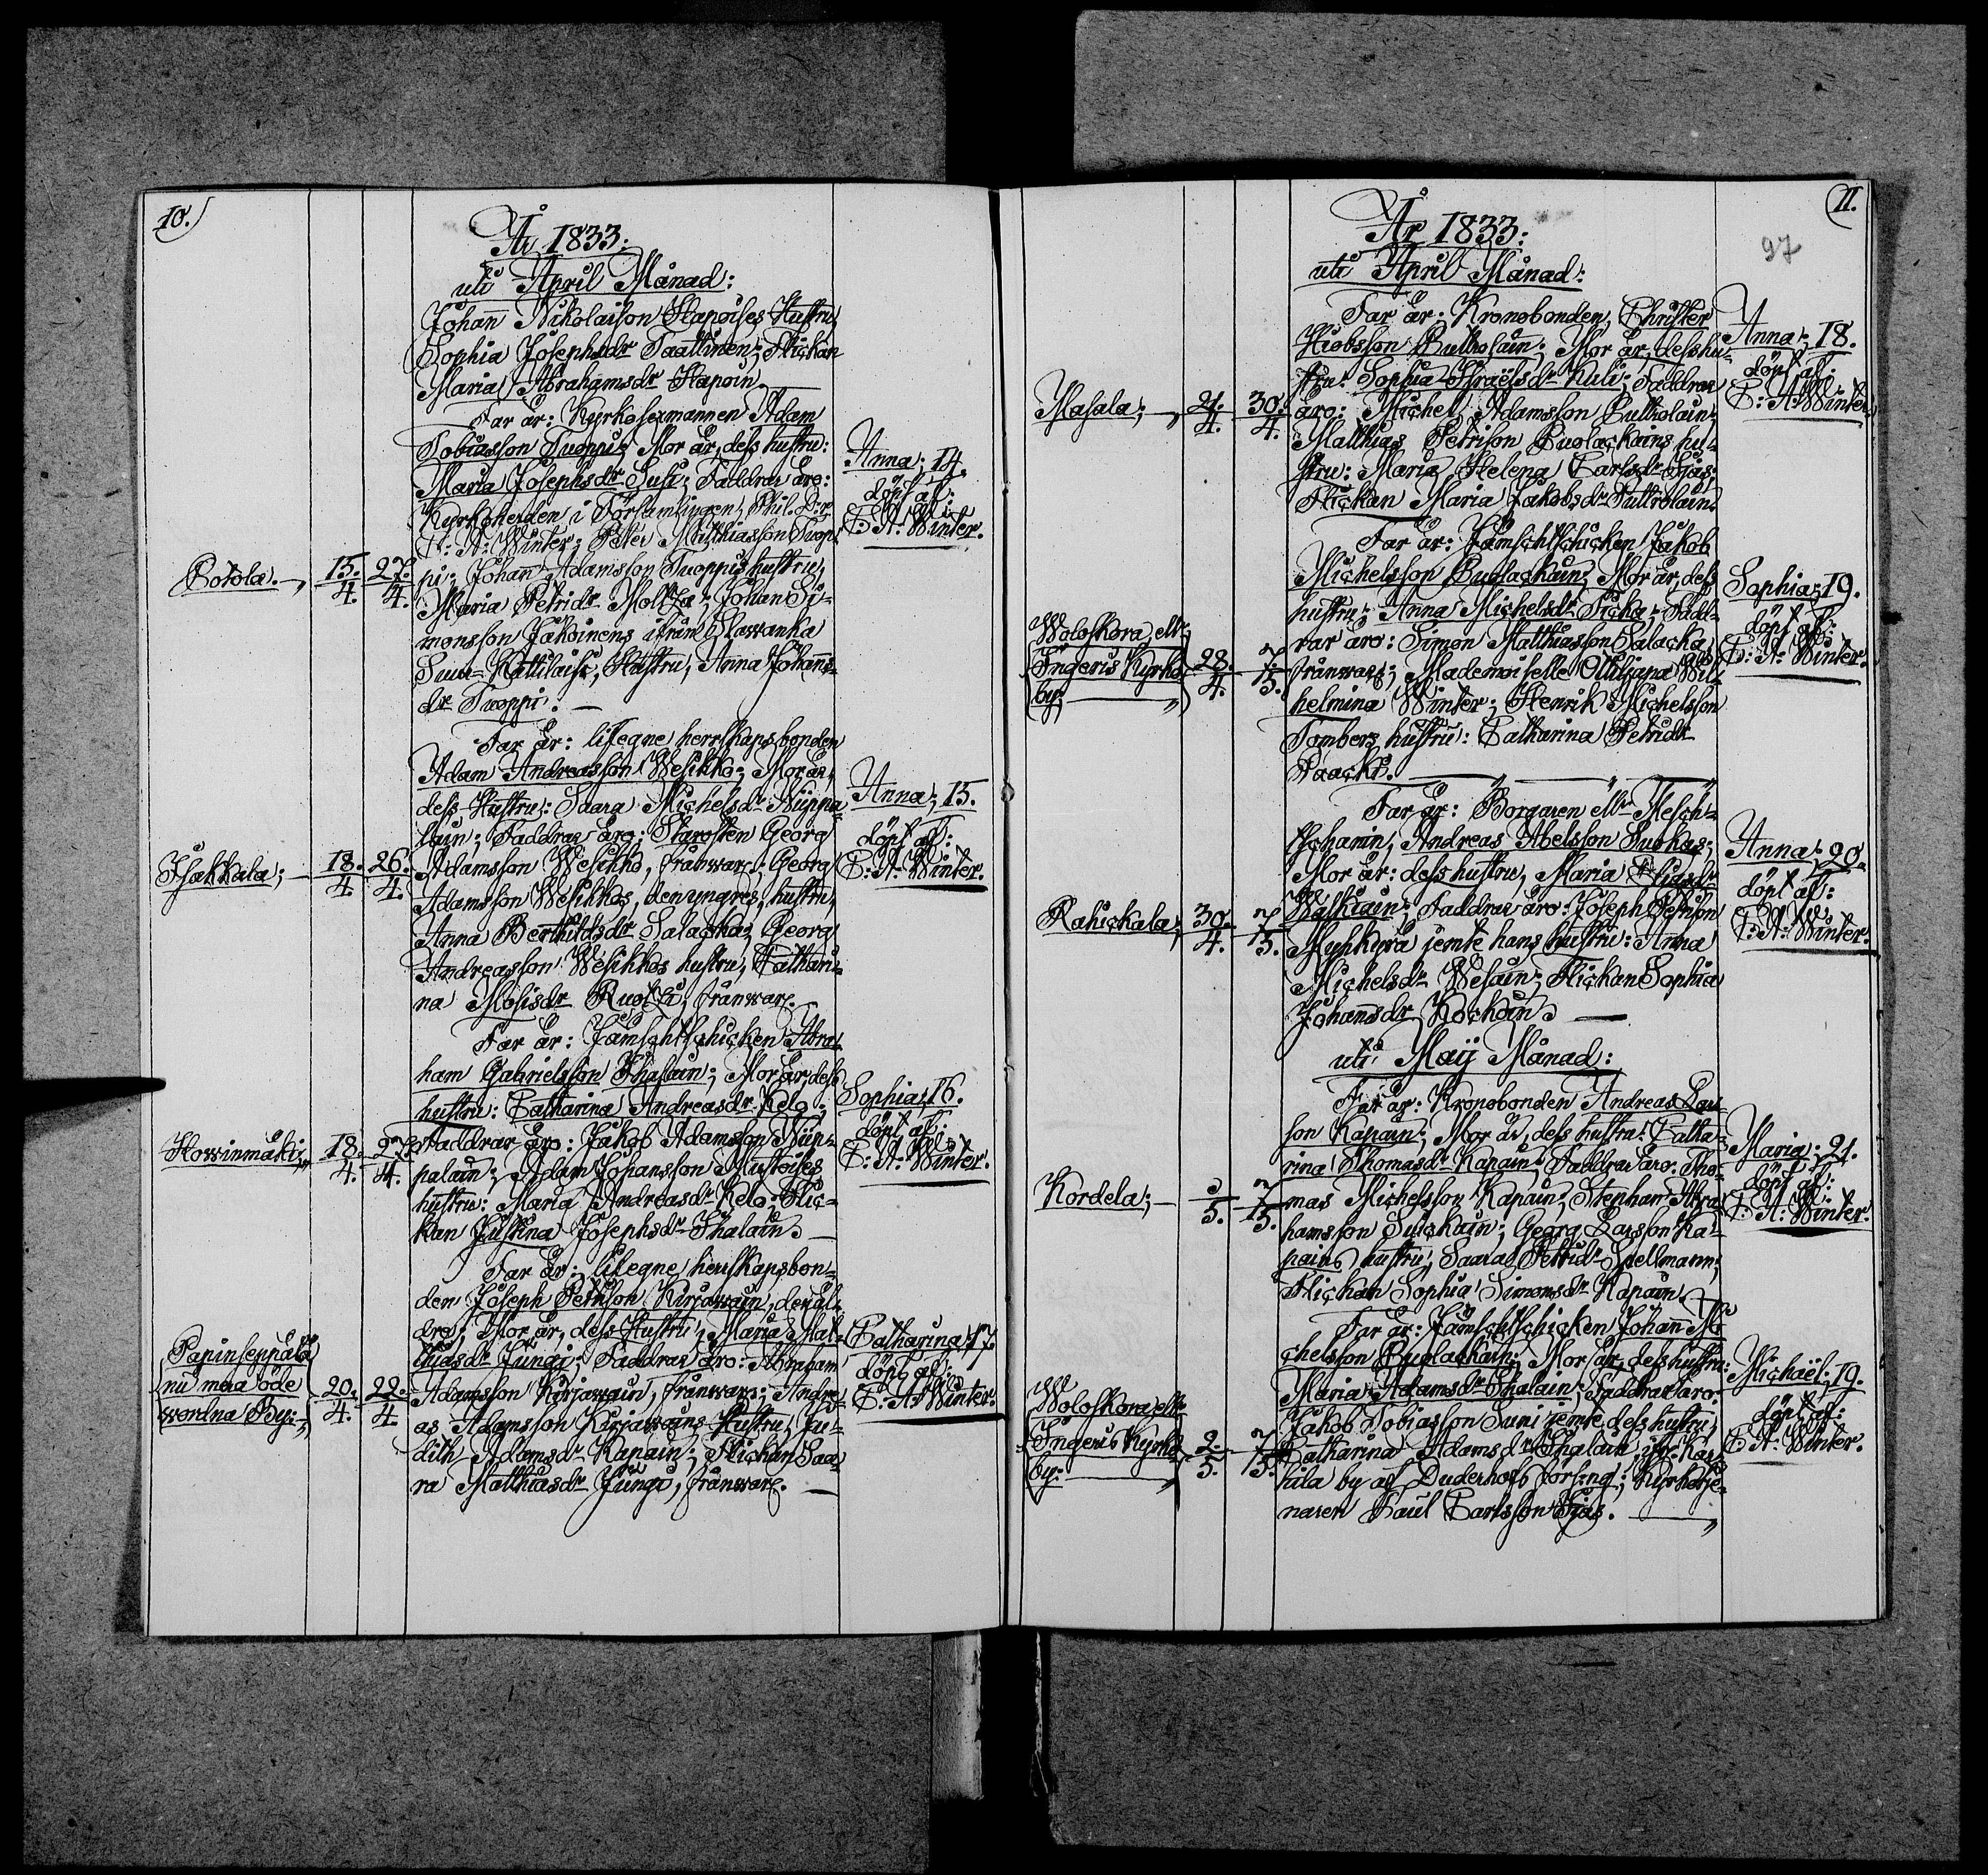 10.
År 1833:
uti April Månad:
Johan Nikolaison Hapoises Hustru
Sophia Josephsdr Taattinen; Flickan
Maria Abrahamsdr Hapoin.
Far är: Kyrkosexmannen Adam
Tobiasson Tuoppi; Mor är, dess hustru:
Maria Josephsdr Susi; Faddrar äro:
Kyrkoherden i Församlingen, Phil. D:r
C: A: Winter; Peter Matthiasson Tuop-
pi; Johan Adamsson Tuoppis hustru,
Maria Petridr ; Johan Si-
monsson Jäkoinens ifrån Slawanka
Suur-Kattilaisi, Hustru, Anna Johans-
dr Tuoppi.
Botola.
15. 27.
4. 4.
Anna; 14.
döpt af:
C: A: Winter.
Far är: lifegne herrskapsbonden
Adam Andreasson Wesikko; Mor är,
dess Hustru: Saara Michelsdr Nuppa-
lain; Faddrar äro: Starosten Georg
Adamsson Wesikko, frånwar; Georg
Adamsson Wesikkos, den yngres, hustru,
Anna Berthildsdr Salacka; Georg
Andreasson Wesikkos hustru, Cathari-
na Mosisdr , frånwar.
Isakkala;
18. 26.
4. 4.
Anna; 15.
döpt af:
C: A: Winter.
Far är: Jämschtschicken Abra-
ham Gabrielsson Ihalain; Mor är, dess
hustru: Catharina Andreasdr Kelo;
Faddrar äro: Jakob Adamsson Nup-
palain; Adam Johansson Mustoises
hustru: Maria Andreasdr Kelo; Flic-
kan Justina Josephsdr Ihalain.
Howinmäki;
18. 27.
4. 4.
Sophia; 16.
döpt af:
C: A: Winter.
Far är: lifegne herrskapsbon-
den Joseph Petrison Kirjawain, den äl-
dre; Mor är, dess Hustru, Maria Mat-
thiasdr Jungi; Faddrar äro: Abraham
Adamsson Kirjawain, frånwar; Andre-
as Adamsson Kirjawains Hustru, Ju-
dith Adamsdr Kapain; Flickan Saa-
ra Matthiasdr Jungi, frånwar.
Papinseppälä
nu mera öde
wordna By;
20. 22.
4. 4.
Catharina; 17.
döpt af:
C: A: Winter.
11.
97
År 1833:
uti April Månad:
Far är: Kronobonden, Christer
Hiobsson Putkolain; Mor är, dess hu-
stru: Sophia Israëlsdr Kuli; Faddrar
äro: Michel Adamsson Putkolain;
Matthias Petrison Puolackains hu-
stru: Maria Helena Carlsdr Sjäs;
Flickan Maria Jakobsdr Putkolain.
Masala;
21. 30.
4. 4.
Anna; 18.
döpt af:
C: A: Winter.
Far är: Jämschtschicken Jakob
Michelsson Puolackain; Mor är, dess
hustru; Anna Michelsdr Sicka; Fadd-
rar äro: Simon Matthiasson Salacka,
frånwar; Mademoiselle Ottiljana Wil-
helmina Winter; Henrik Michelsson
Tombers hustru: Catharina Petridr
Paacki.
Woloskowa, ell:
Ingeris Kyrko-
by;
28. 7.
4. 5.
Sophia; 19.
döpt af:
C: A: Winter.
Far är: Borgaren ell:r Mesch-
tschanin, Andreas Abelsson Suokas;
Mor är: dess hustru, Maria Eliasdr
Walkiain; Faddrar äro: Joseph Petrison
Myhkyrä jemte hans hustru: Anna
Michelsdr Wesain; Flickan Sophia
Johansdr Kockoin.
Rahickala;
30. 7.
4. 5.
Anna; 20.
döpt af:
C: A: Winter.
uti Maij Månad:
Far är: Kronobonden Andreas Lars-
son Kapain; Mor är, dess hustru: Catha-
rina Thomasdr Kapain; Faddrar äro: Tho-
mas Michelsson Kapain; Stephan Abra-
hamsson Suickain; Georg Larsson Ka-
pains hustru, Saara Petridr Spellmann;
Flickan Sophia Simonsdr Kapain.
Kordela;
5. 5.
Maria; 21.
döpt af:
C: A: Winter.
Far är: Jämschtschicken Johan Mi-
chelsson Puolackain; Mor är, dess hustru:
Maria Adamsdr Ihalain; Faddrar äro:
Jakob Tobiasson Suni jemte dess hustru,
Catharina Adamsdr Ihalain, ifr: Kas-
hila by af Duderhofs förs:ng; Kyrkotje-
naren Paul Carlsson Sjäs.
Woloskowa ell:
Ingeris Kyrko-
by:
2. 7.
5. 5.
Michaël; 19.
döpt af:
C: A: Winter.